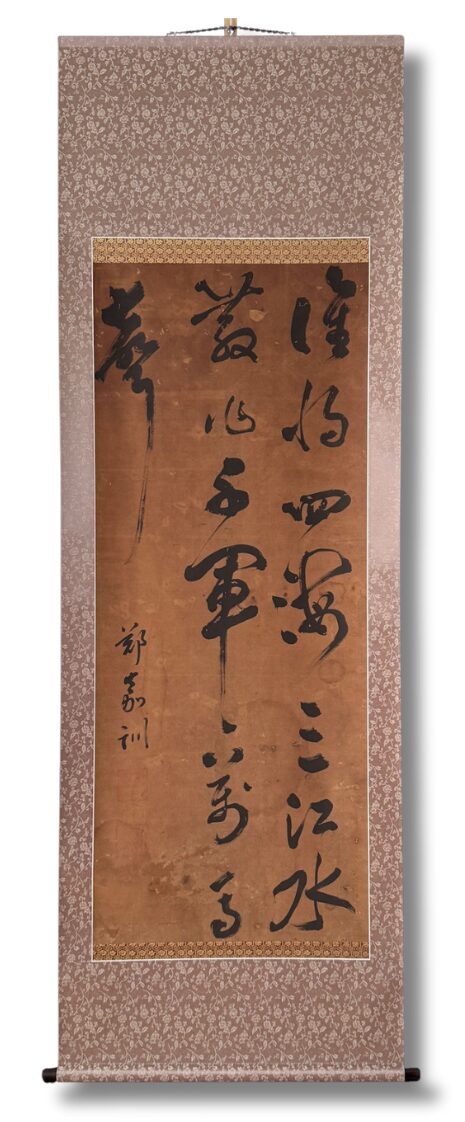 誰將四海三江水
散作千軍萬馬
聲
鄭嘉訓